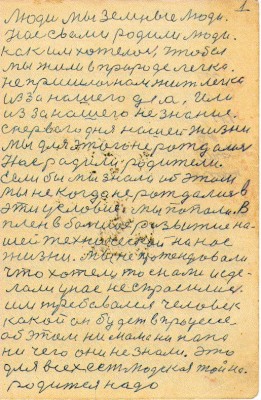 1.
Люди мы земные люди.
Нас с вами родили люди.
как им хотелось, чтобы
мы жили в природе легко.
не пришлось нам жит легко
из за нашего дела, или
из за нашего не знание.
с первого дня нашей жизни
мы для этого не рождались
Нас радили родители.
если бы мы знали об этом
мы не когда не рождались в
эти условия мы попали. В
плен в большое развитие на-
шей технической на нас
жизни. мы не
что хотели то с нами и сде-
лали у нас не спросились
им требовался человек
какой он будет в процессе
об этом ни мама ни папа
ни чего они не знали. Это
для всех ест людская тайна.
родится надо